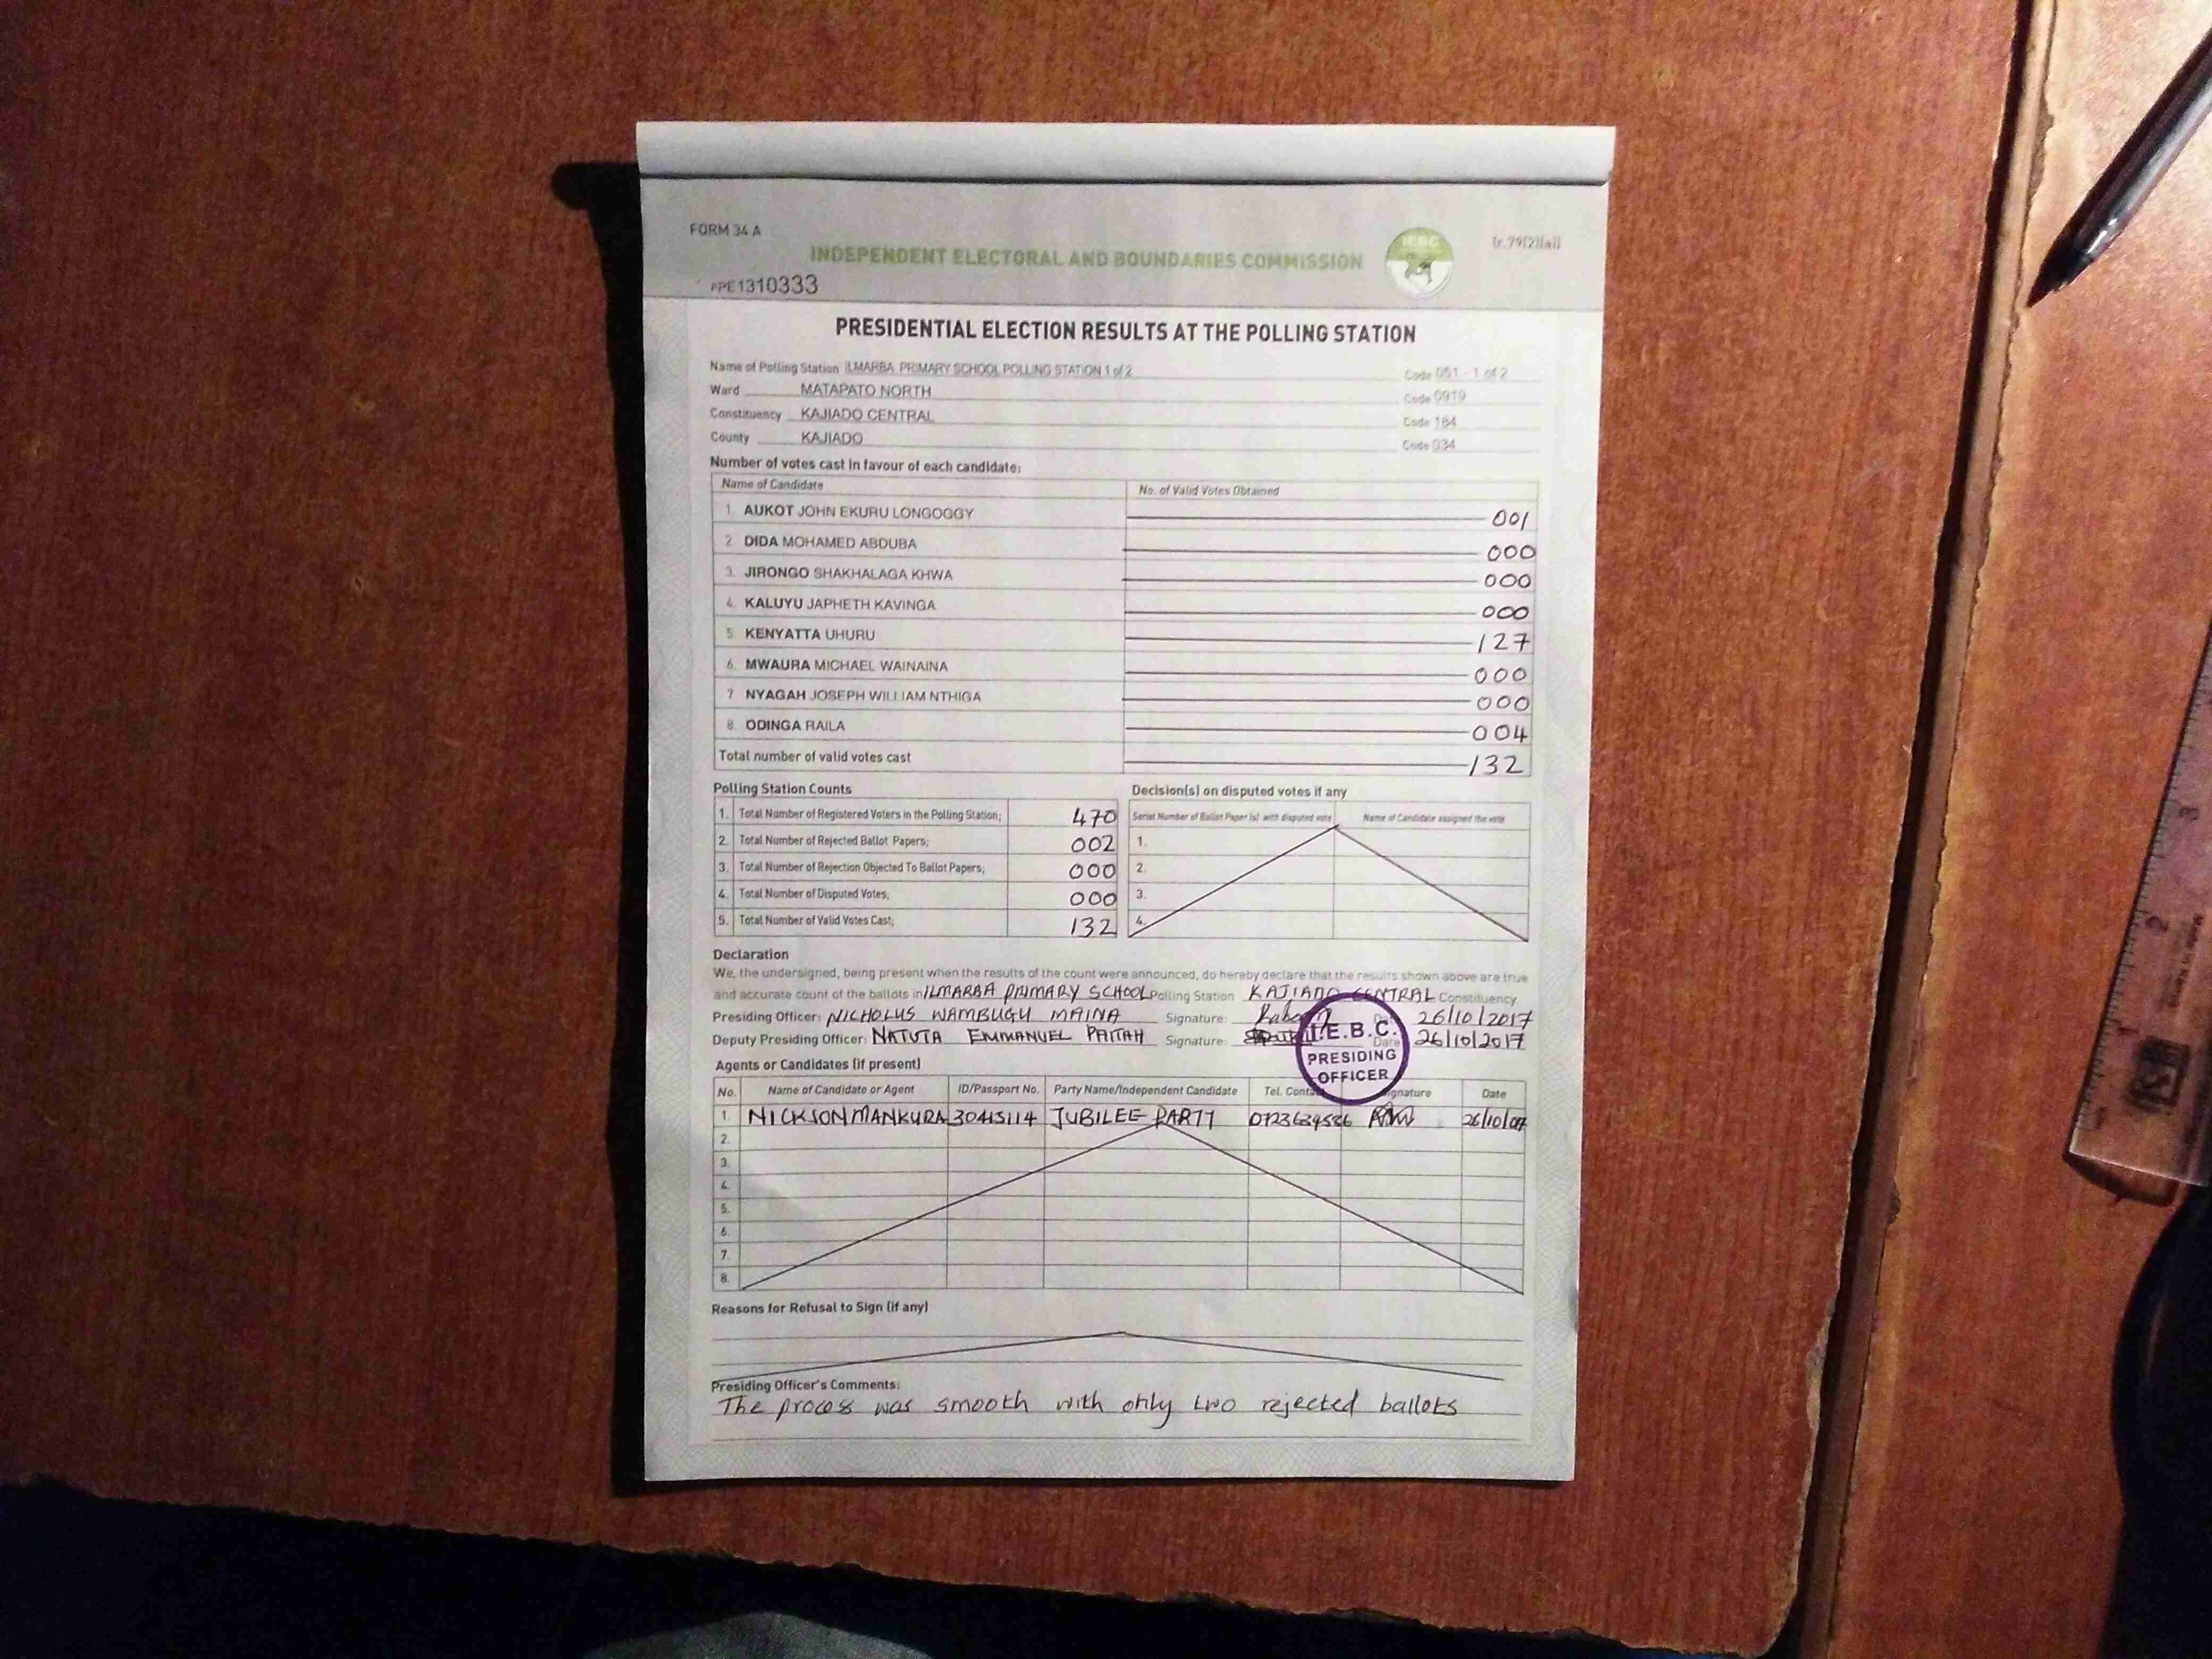 FORM 34 A
(r.79(2)(a))
IEBC
INDEPENDENT ELECTORAL AND BOUNDARIES COMMISSION
PPE1310333
PRESIDENTIAL ELECTION RESULTS AT THE POLLING STATION
Name of Polling Station ILMARBA PRIMARY SCHOOL POLLING STATION 1 of 2 Code 051 - 1 of 2
Ward MATAPATO NORTH Code 0919
Constituency KAJIADO CENTRAL Code 184
County KAJIADO Code 034
Number of votes cast in favour of each candidate:
Name of Candidate No. of Valid Votes Obtained
1. AUKOT JOHN EKURU LONGOGGY 001
2. DIDA MOHAMED ABDUBA 000
3. JIRONGO SHAKHALAGA KHWA 000
4. KALUYU JAPHETH KAVINGA 000
5. KENYATTA UHURU 127
6. MWAURA MICHAEL WAINAINA 000
7. NYAGAH JOSEPH WILLIAM NTHIGA 000
8. ODINGA RAILA 004
Total number of valid votes cast 132
Polling Station Counts
1. Total Number of Registered Voters in the Polling Station; 470
2. Total Number of Rejected Ballot Papers; 002
3. Total Number of Rejection Objected To Ballot Papers; 000
4. Total Number of Disputed Votes; 000
5. Total Number of Valid Votes Cast; 132
Decision(s) on disputed votes if any
Serial Number of Ballot Paper (s) with disputed vote Name of Candidate assigned the vote
1.
2.
3.
4.
Declaration
We, the undersigned, being present when the results of the count were announced, do hereby declare that the results shown above are true
and accurate count of the ballots in ILMARBA PRIMARY SCHOOL Polling Station KAJIADO CENTRAL Constituency.
Presiding Officer: NICHOLUS WAMBUGU MAINA Signature: Date 26/10/2017
Deputy Presiding Officer: NATUTA EMMANUEL PAITAH Signature: Date 26/10/2017
I.E.B.C.
PRESIDING
OFFICER
Agents or Candidates (if present)
No. Name of Candidate or Agent ID/Passport No. Party Name/Independent Candidate Tel. Contact Signature Date
1. NICKSON MANKURA JUBILEE PARTY 26/10/017
2.
3.
4.
5.
6.
7.
8.
Reasons for Refusal to Sign (if any)
Presiding Officer's Comments:
The process was smooth with only two rejected ballots
3
2